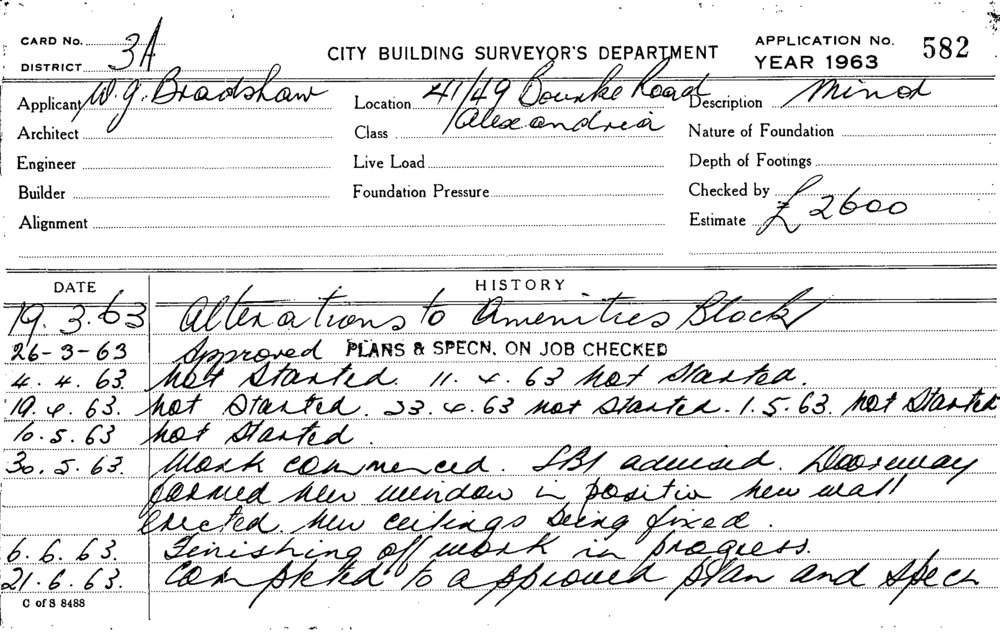 CARD No. 3A
DISTRICT
CITY BUILDING SURVEYOR'S DEPARTMENT
APPLICATION No. 582
YEAR 1963
Applicant W. G. Bradshaw
Location 41/49 Bourke Road
Alexandria
Description Minor
Architect
Class
Nature of Foundation
Engineer
Live Load
Depth of Footings
Builder
Foundation Pressure
Checked by
Alignment
Estimate £2600
DATE HISTORY
19.3.63 Alterations to Amenities Block
26-3-63 Approved PLANS & SPECN. ON JOB CHECKED
4.4.63. not Started. 11.4.63 not Started.
19.4.63. not Started. 23.4.63 not Started. 1.5.63. not Started
10.5.63 not Started.
30.5.63. Work commenced. SBI advised. Doorway
formed new window in positin new wall
erected. new ceilings being fixed.
6.6.63. Finishing off work in progress.
21.6.63. Completed to approved plan and specn
C of S 8488